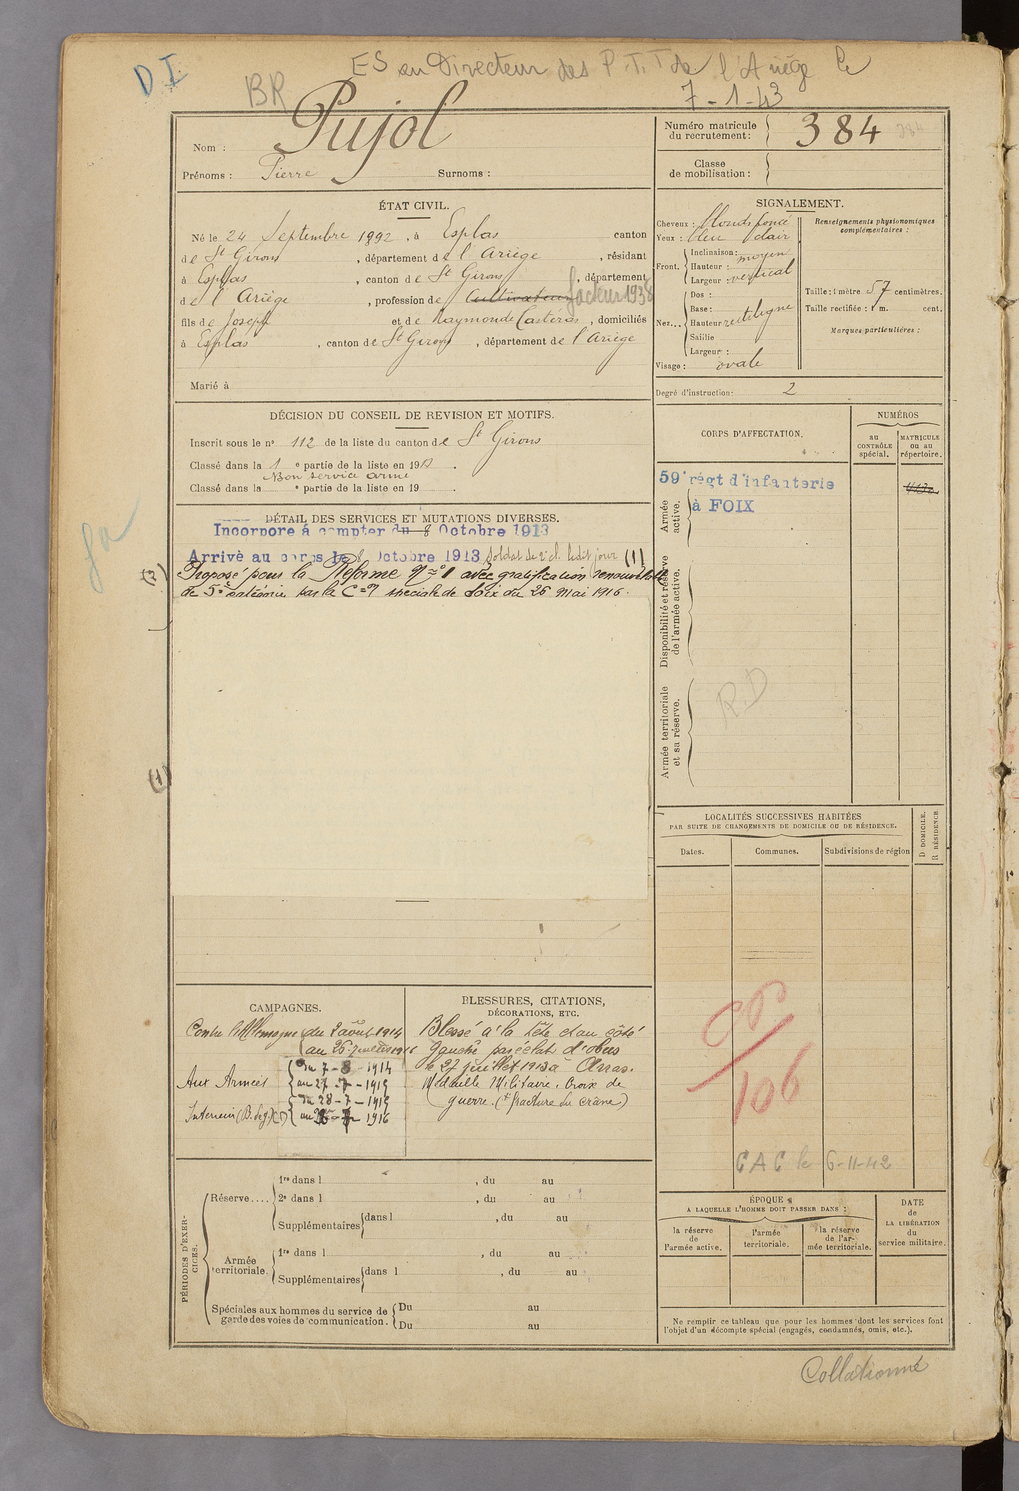 D.I.
BR
ES en Directeur des P.T.T de l'Ariège le
7-1-43
Nom : Pujol
Prénoms : Pierre Surnoms :
Numéro matricule du recrutement : 384
Classe de mobilisation :
ÉTAT CIVIL.
Né le 24 Septembre 1892, à Esplas canton
de St Girons, département de l'Ariège, résidant
à Esplas, canton de St Girons, département
de l'Ariège, profession de Cultivateur facteur 1938
fils de Joseph et de Raymonde Castéras, domiciliés
à Esplas, canton de St Girons, département de l'Ariège
Marié à
SIGNALEMENT.
Cheveux : blonds foncé
Yeux : bleu clair
Front. Inclinaison : moyen
Hauteur : vertical
Largeur :
Nez... Dos :
Base :
Hauteur rectiligne
Saillie
Largeur :
Visage : ovale
Renseignements physionomiques complémentaires :
Taille : 1 mètre 57 centimètres.
Taille rectifiée : 1 m. cent.
Marques particulières :
Degré d'instruction : 2
DÉCISION DU CONSEIL DE REVISION ET MOTIFS.
Inscrit sous le n° 112 de la liste du canton de St Girons
Classé dans la 1e partie de la liste en 19
Bon service armé
Classé dans la e partie de la liste en 19
CORPS D'AFFECTATION.
NUMÉROS
au CONTRÔLE spécial.
MATRICULE ou au répertoire.
Armée active.
59e régt d'infanterie
à FOIX
Disponibilité et réserve de l'armée active.
Armée territoriale et sa réserve.
R.D
DÉTAIL DES SERVICES ET MUTATIONS DIVERSES.
Incorporé à compter du 8 Octobre 1913
Arrivé au corps le 8 Octobre 1913 soldat de 2e cl. ledit jour (1)
Proposé pour la Réforme n° 1 avec gratification renouvelable
de 5e catégorie par la Con spéciale de Foix du 26 mai 1916.
(1)
LOCALITÉS SUCCESSIVES HABITÉES
PAR SUITE DE CHANGEMENTS DE DOMICILE OU DE RÉSIDENCE.
Dates.
Communes.
Subdivisions de région
D DOMICILE.
R RÉSIDENCE.
106
CAC le 6-11-42
CAMPAGNES.
Contre l'Allemagne du 2 août 1914
au 26 1916
Aux Armées du 7-8-1914
au 27-7-1915
Intérieur du 28-7-1915
au 1916
BLESSURES, CITATIONS,
DÉCORATIONS, ETC.
Blessé à la tête et au côté
gauche par éclat d'obus
le 27 juillet 1915 à Arras.
Médaille Militaire. Croix de
guerre. (+ fracture du crâne)
PÉRIODES D'EXERCICES.
Réserve....
1re dans l , du au
2e dans l , du au
Supplémentaires dans l , du au
Armée territoriale.
1re dans l , du au
Supplémentaires dans l , du au
Spéciales aux hommes du service de garde des voies de communication.
Du au
Du au
ÉPOQUE
A LAQUELLE L'HOMME DOIT PASSER DANS :
la réserve de l'armée active.
l'armée territoriale.
la réserve de l'armée territoriale.
DATE de LA LIBÉRATION du service militaire.
Ne remplir ce tableau que pour les hommes dont les services font
l'objet d'un décompte spécial (engagés, condamnés, omis, etc.).
Collationné